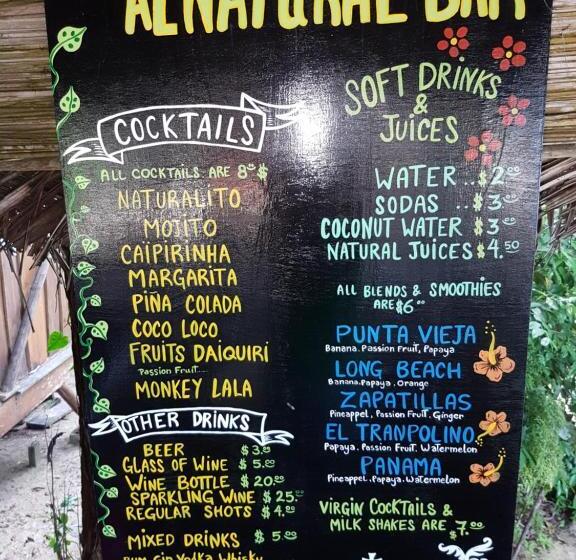 ALNATURAL BAR
COCKTAILS
ALL COCKTAILS ARE 8⁰⁰ $
NATURALITO
MOJITO
CAIPIRINHA
MARGARITA
PIÑA COLADA
COCO LOCO
FRUITS DAIQUIRI
Passion Fruit...
MONKEY LALA
OTHER DRINKS
BEER $3.⁰⁰
GLASS OF WINE $5.⁰⁰
WINE BOTTLE $20⁰⁰
SPARKLING WINE $25.⁰⁰
REGULAR SHOTS $4.⁰⁰
MIXED DRINKS $5.⁰⁰
Rum Gin Vodka Whisky
SOFT DRINKS
&
JUICES
WATER ..$2⁰⁰
SODAS .$3⁰⁰
COCONUT WATER $3⁰⁰
NATURAL JUICES $4.⁵⁰
ALL BLENDS & SMOOTHIES
ARE $6⁰⁰
PUNTA VIEJA
Banana. Passion Fruit, Papaya
LONG BEACH
Banana. Papaya. Orange
ZAPATILLAS
Pineappel, Passion Fruit. Ginger
EL TRANPOLINO
Papaya. Passion Fruit. Watermelon
PANAMA
Pineappel. Papaya. Watermelon
VIRGIN COCKTAILS &
MILK SHAKES ARE
$7.⁰⁰